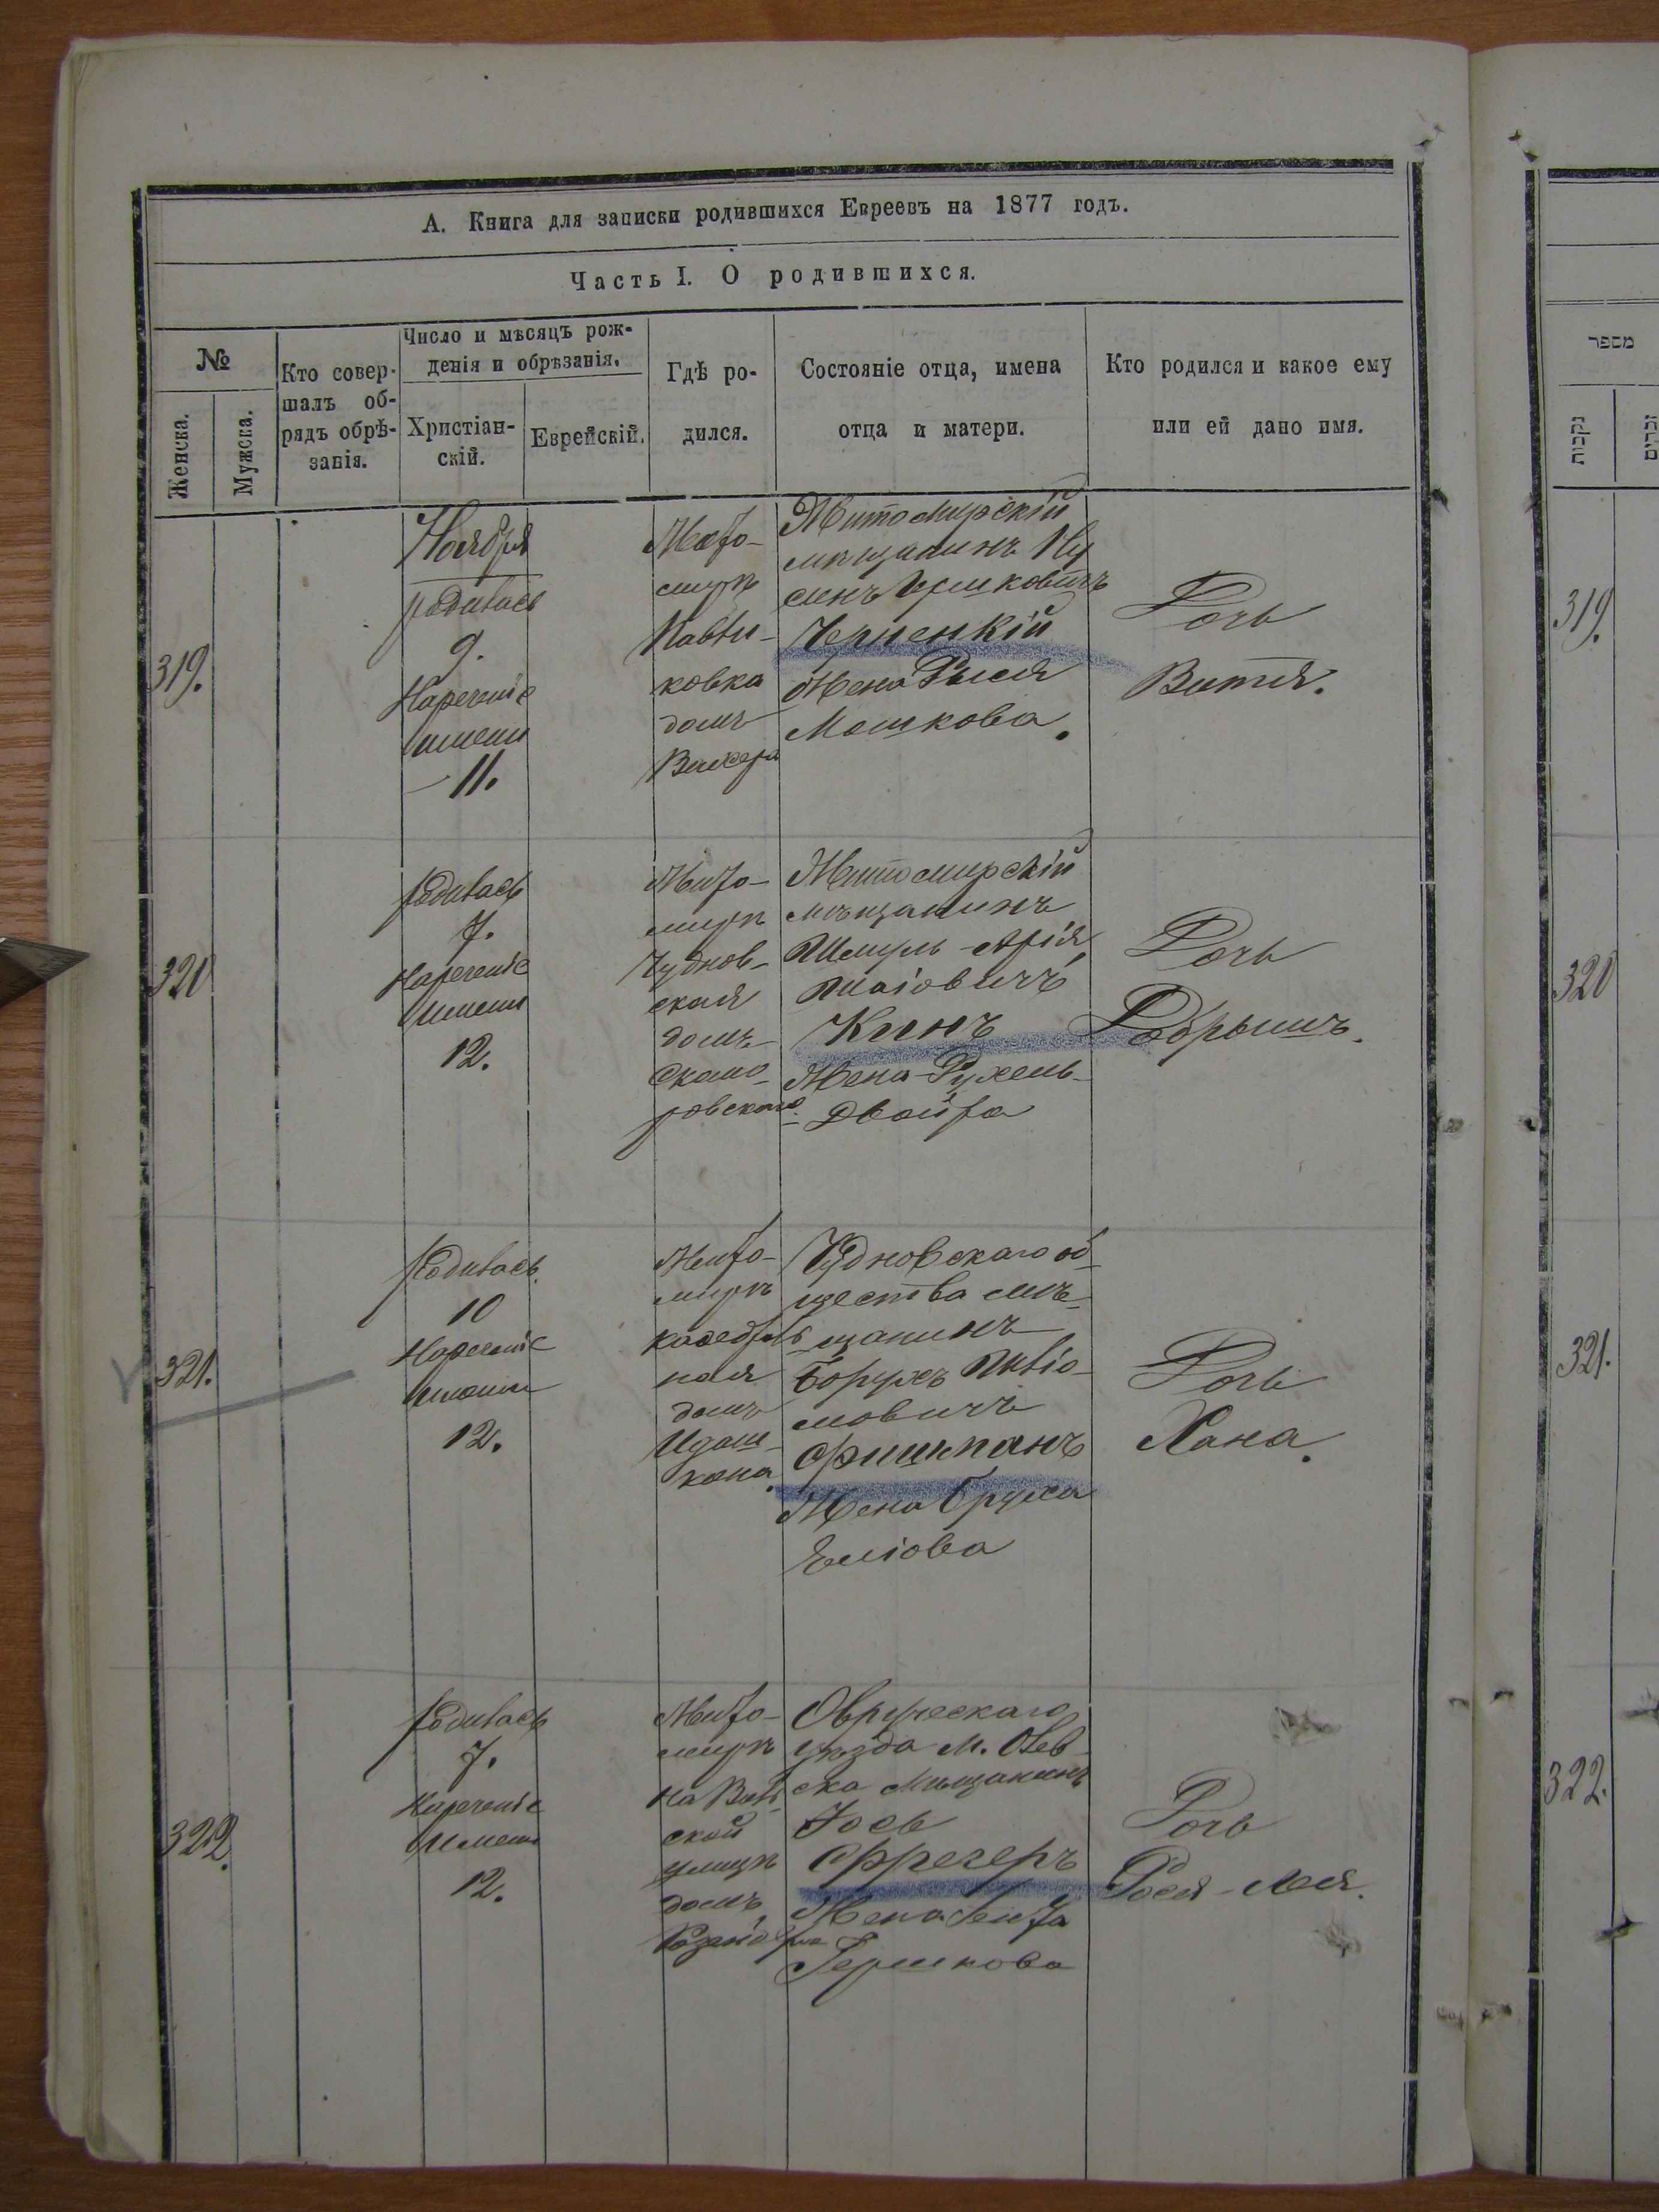 А. Книга для записки родившихся Евреевъ на 1877 годъ.
Часть I. О родившихся.
№
Женска.
Мужска.
Кто совер-
шалъ об-
рядъ обрѣ-
занія.
Число и мѣсяцъ рож-
денія и обрѣзанія.
Христіан-
скій.
Еврейскій.
Гдѣ ро-
дился.
Состояніе отца, имена
отца и матери.
Кто родился и какое ему
или ей дано имя.
319.
Ноября
родилась
9.
Наречение
имени
11.
Жито-
миръ
Павли-
ковка
домъ
Житомирскій
мѣщанинъ Ну
сенъ Ицковичъ
Черненкій
Жена Рыся
Мошкова.
Дочь
Витя.
320
родилась
7.
Наречение
имени
12.
Жито-
миръ
Чуднов-
ская
домъ
Скомо-
ровскаго
Житомирскій
мѣщанинъ
Шмуль-Арія
Шаіовичъ
Кинъ
Жена-Рухель-
Двойра
Дочь
Добрышъ.
321.
родилась
10
Наречение
имени
12.
Жито-
миръ
кафедраль
ная
домъ
Чудновскаго об-
щества мѣ-
щанинъ
Борухъ
мовичъ
Фишманъ
Жена Бруха
Еліова
Дочь
Хана.
322.
родилась
7.
Наречение
имени
12.
Жито-
миръ
на Виль
ской
улицѣ
домъ
Овручскаго
уѣзда м. Олев-
ска мѣщанинъ
Іось
Фрегеръ
Жена
Гершкова
Дочь
Рося-Лея.
מספר
נקבות
זכרים
319.
320
321.
322.